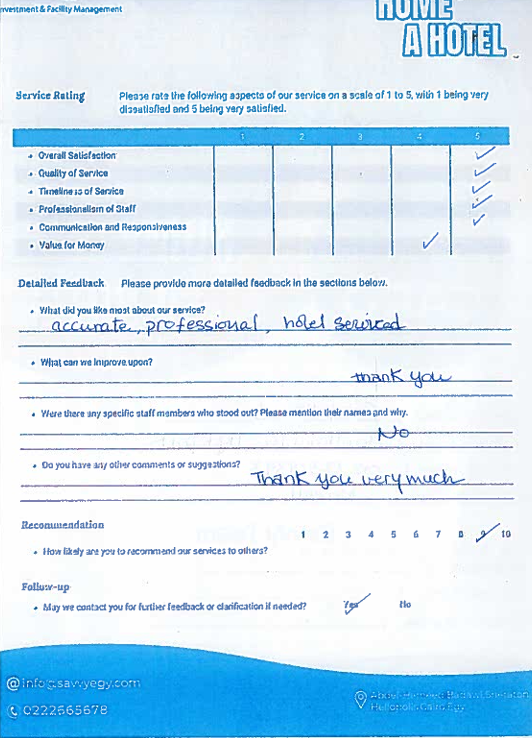 nvestment & Facility Management
HOME
A HOTEL
Service Rating
Please rate the following aspects of our service on a scale of 1 to 5, with 1 being very
dissatisfied and 5 being very satisfied.
1 2 3 4 5
• Overall Satisfaction ✓
• Quality of Service ✓
• Timeliness of Service ✓
• Professionalism of Staff ✓
• Communication and Responsiveness ✓
• Value for Money ✓
Detailed Feedback Please provide more detailed feedback in the sections below.
• What did you like most about our service?
accurate, professional, hotel serviced
• What can we improve upon?
thank you
• Were there any specific staff members who stood out? Please mention their names and why.
No
• Do you have any other comments or suggestions?
Thank you very much
Recommendation
1 2 3 4 5 6 7 8 9 10
• How likely are you to recommend our services to others?
Follow-up
• May we contact you for further feedback or clarification if needed? Yes No
@info@savvyegy.com
0222665678
Abdel Hameed Badawi, Sheraton,
Heliopolis Cairo Egy